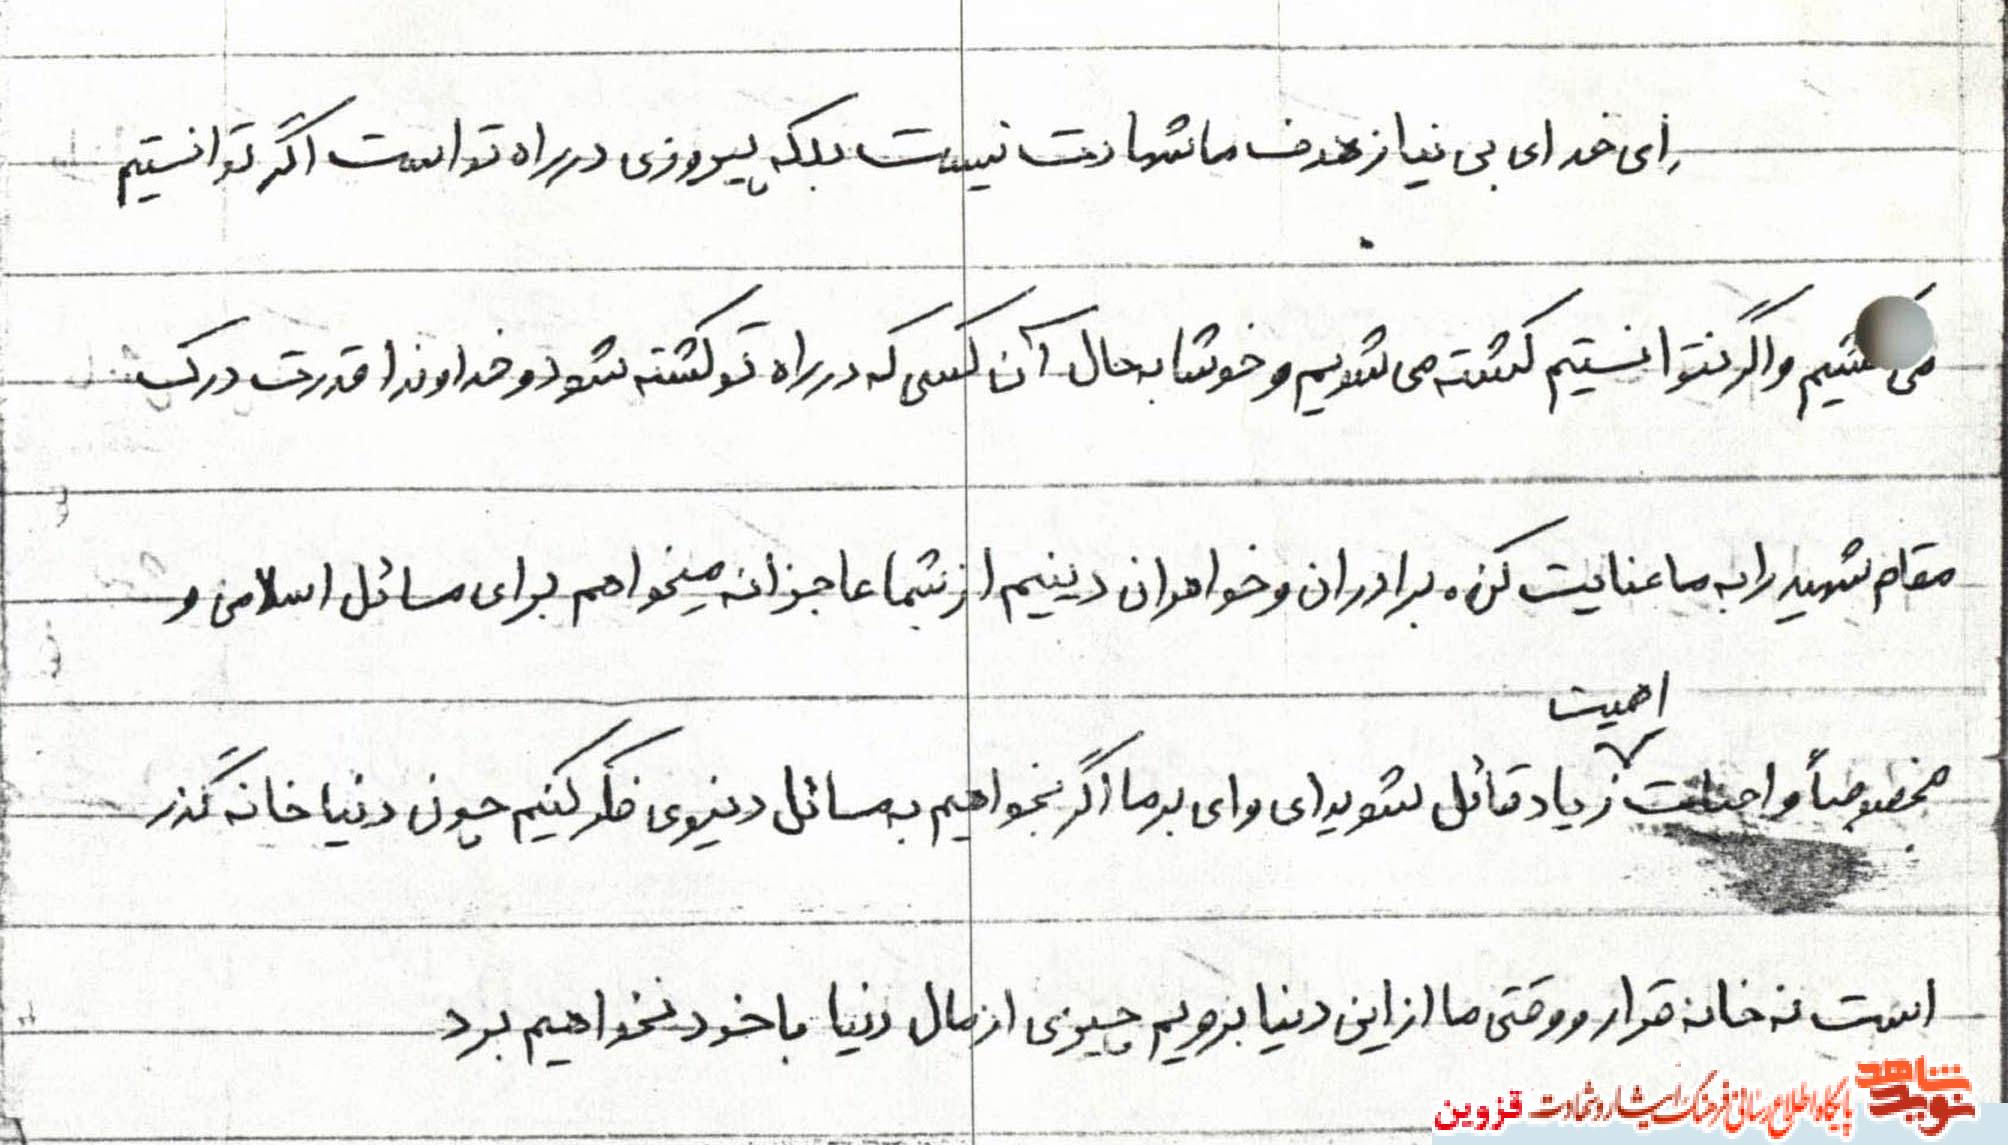 ای خدای بی نیاز هدف ما شهادت نیست بلکه پیروزی در راه تو است اگر توانستیم
می کشیم و اگر نتوانستیم کشته می شویم و خوشا به حال آن کسی که در راه تو کشته شود و خداوندا قدرت درک
مقام شهید را به ما عنایت کن. برادران و خواهران دینیم از شما عاجزانه میخواهم برای مسائل اسلامی و
اهمیت
مخصوصاً زیاد قائل شوید ای وای بر ما اگر بخواهیم به مسائل دنیوی فکر کنیم چون دنیا خانه گذر
است نه خانه قرار و وقتی ما از این دنیا برویم چیزی از مال دنیا با خود نخواهیم برد
نوید شاهد
پایگاه اطلاع رسانی فرهنگ ایثار و شهادت قزوین